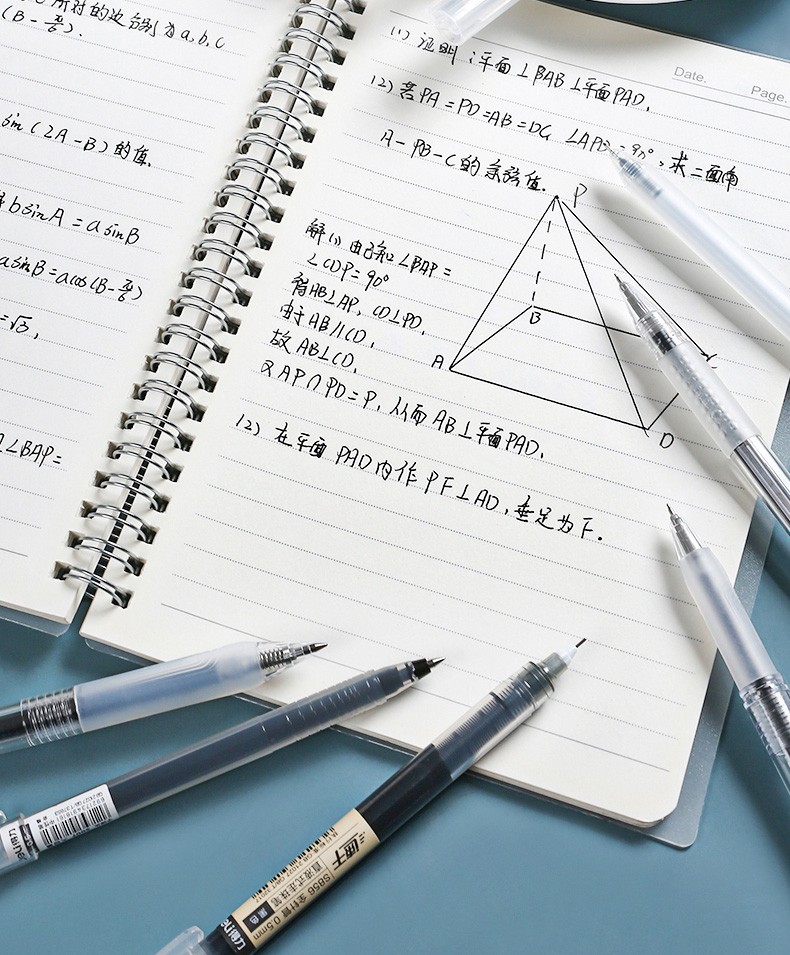 所对的边分别为a,b,c
(B-π/6).
sin(2A-B)的值.
bsinA=asinB
asinB=acos(B-π/6)
=√3,
∠BAP=
Date.
Page.
(1)证明:平面⊥BAB⊥平面PAD.
(2)若PA=PD=AB=DC,∠APD=90°,求二面角
A-PB-C的余弦值.
P
B
A
C
D
解(1)由已知∠BAP=
∠CDP=90°
得AB⊥AP,CD⊥PD,
由于AB∥CD,
故AB⊥CD,
又AP∩PD=P,从而AB⊥平面PAD.
(2)在平面PAD内作PF⊥AD,垂足为F.
直液式走珠笔
S656 全针管 0.5mm
黑色
deli得力